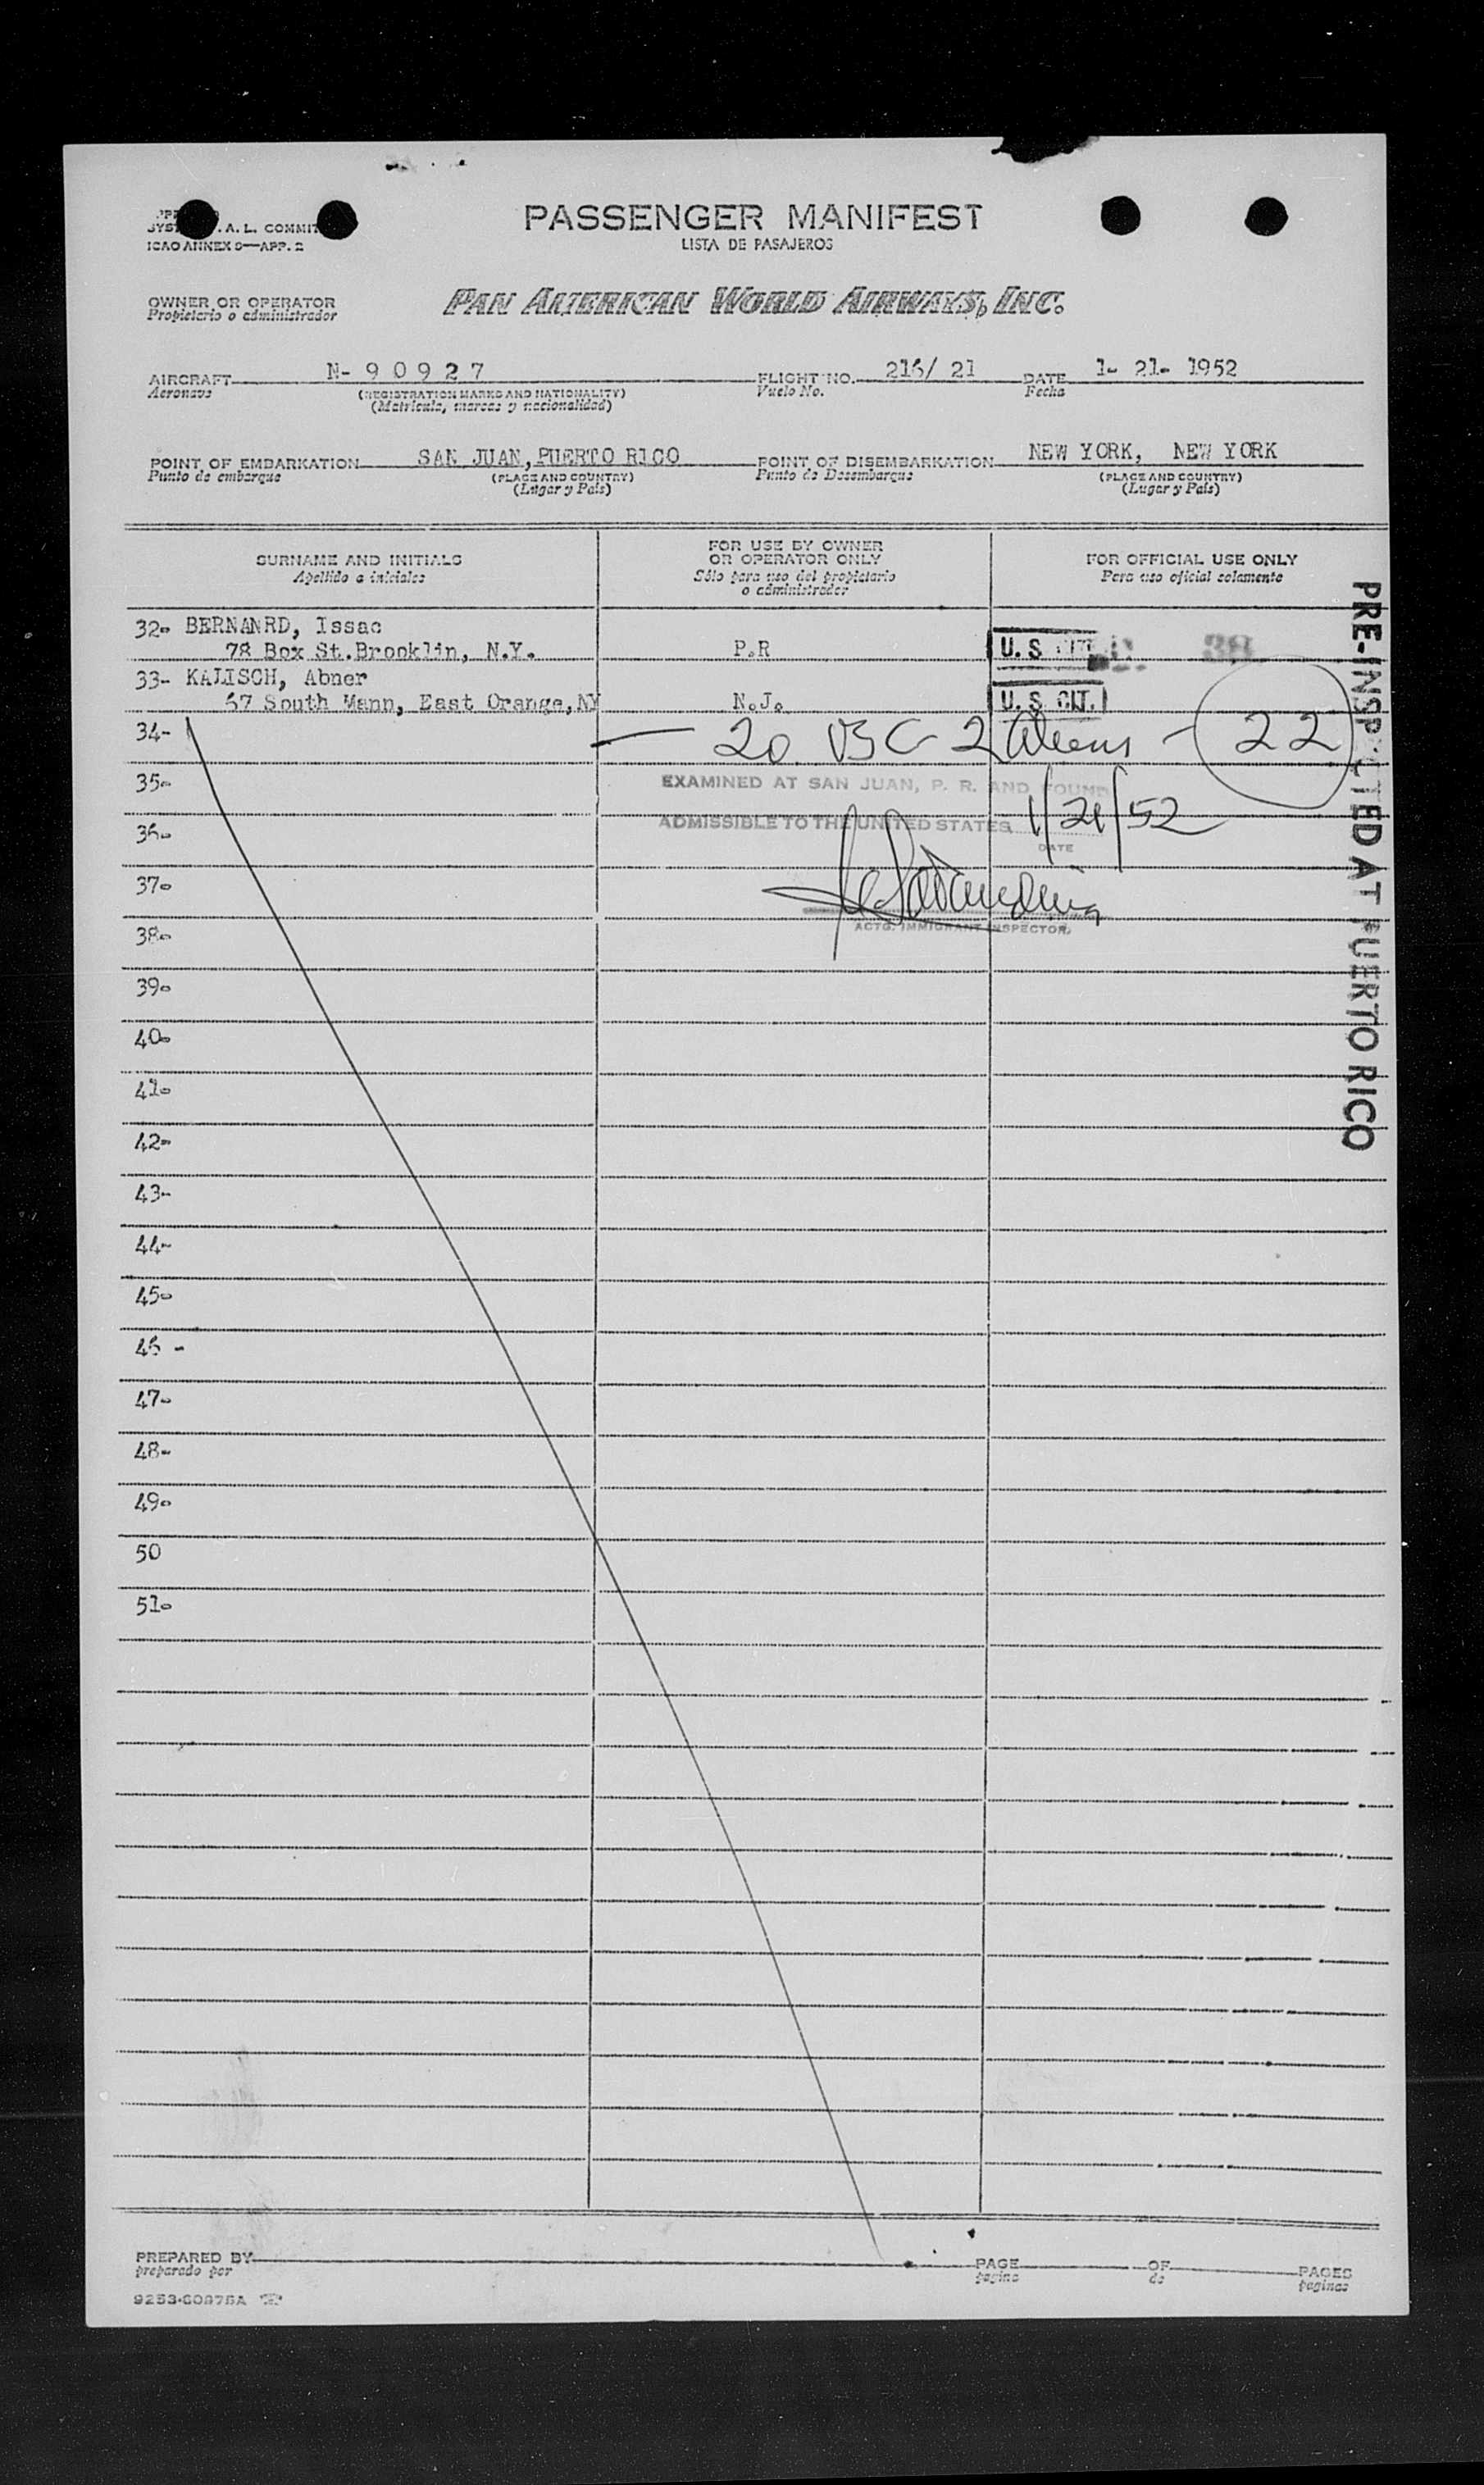 PASSENGER MANIFEST
LISTA DE PASAJEROS
A. L. COMMIT
ICAO ANNEX 9—APP. 2
OWNER OR OPERATOR
Propietario o administrador
PAN AMERICAN WORLD AIRWAYS, INC.
AIRCRAFT N- 9 0 9 2 7 FLIGHT NO. 216/ 21 DATE 1- 21- 1952
Aeronave (REGISTRATION MARKS AND NATIONALITY) Vuelo No. Fecha
(Matricula, marcas y nacionalidad)
POINT OF EMBARKATION SAN JUAN, PUERTO RICO POINT OF DISEMBARKATION NEW YORK, NEW YORK
Punto de embarque (PLACE AND COUNTRY) Punto de Desembarque (PLACE AND COUNTRY)
(Lugar y País) (Lugar y País)
SURNAME AND INITIALS
Apellido e iniciales
FOR USE BY OWNER
OR OPERATOR ONLY
Sólo para uso del propietario
o administrador
FOR OFFICIAL USE ONLY
Para uso oficial solamente
32- BERNANRD, Issac
78 Box St. Brooklin, N.Y. P.R U. S
33- KALISCH, Abner
67 South Mann, East Orange, NY N.J. U. S CIT.
34- — 20 2 Aliens - 22
35- EXAMINED AT SAN JUAN, P. R. AND FOUND
36- ADMISSIBLE TO THE UNITED STATES 1/21/52
DATE
37-
38- ACTG. IMMIGRANT INSPECTOR
39-
40-
41-
42-
43-
44-
45-
46 -
47-
48-
49-
50
51-
PRE-INSPECTED AT PUERTO RICO
PREPARED BY PAGE OF PAGES
preparado por pagina de paginas